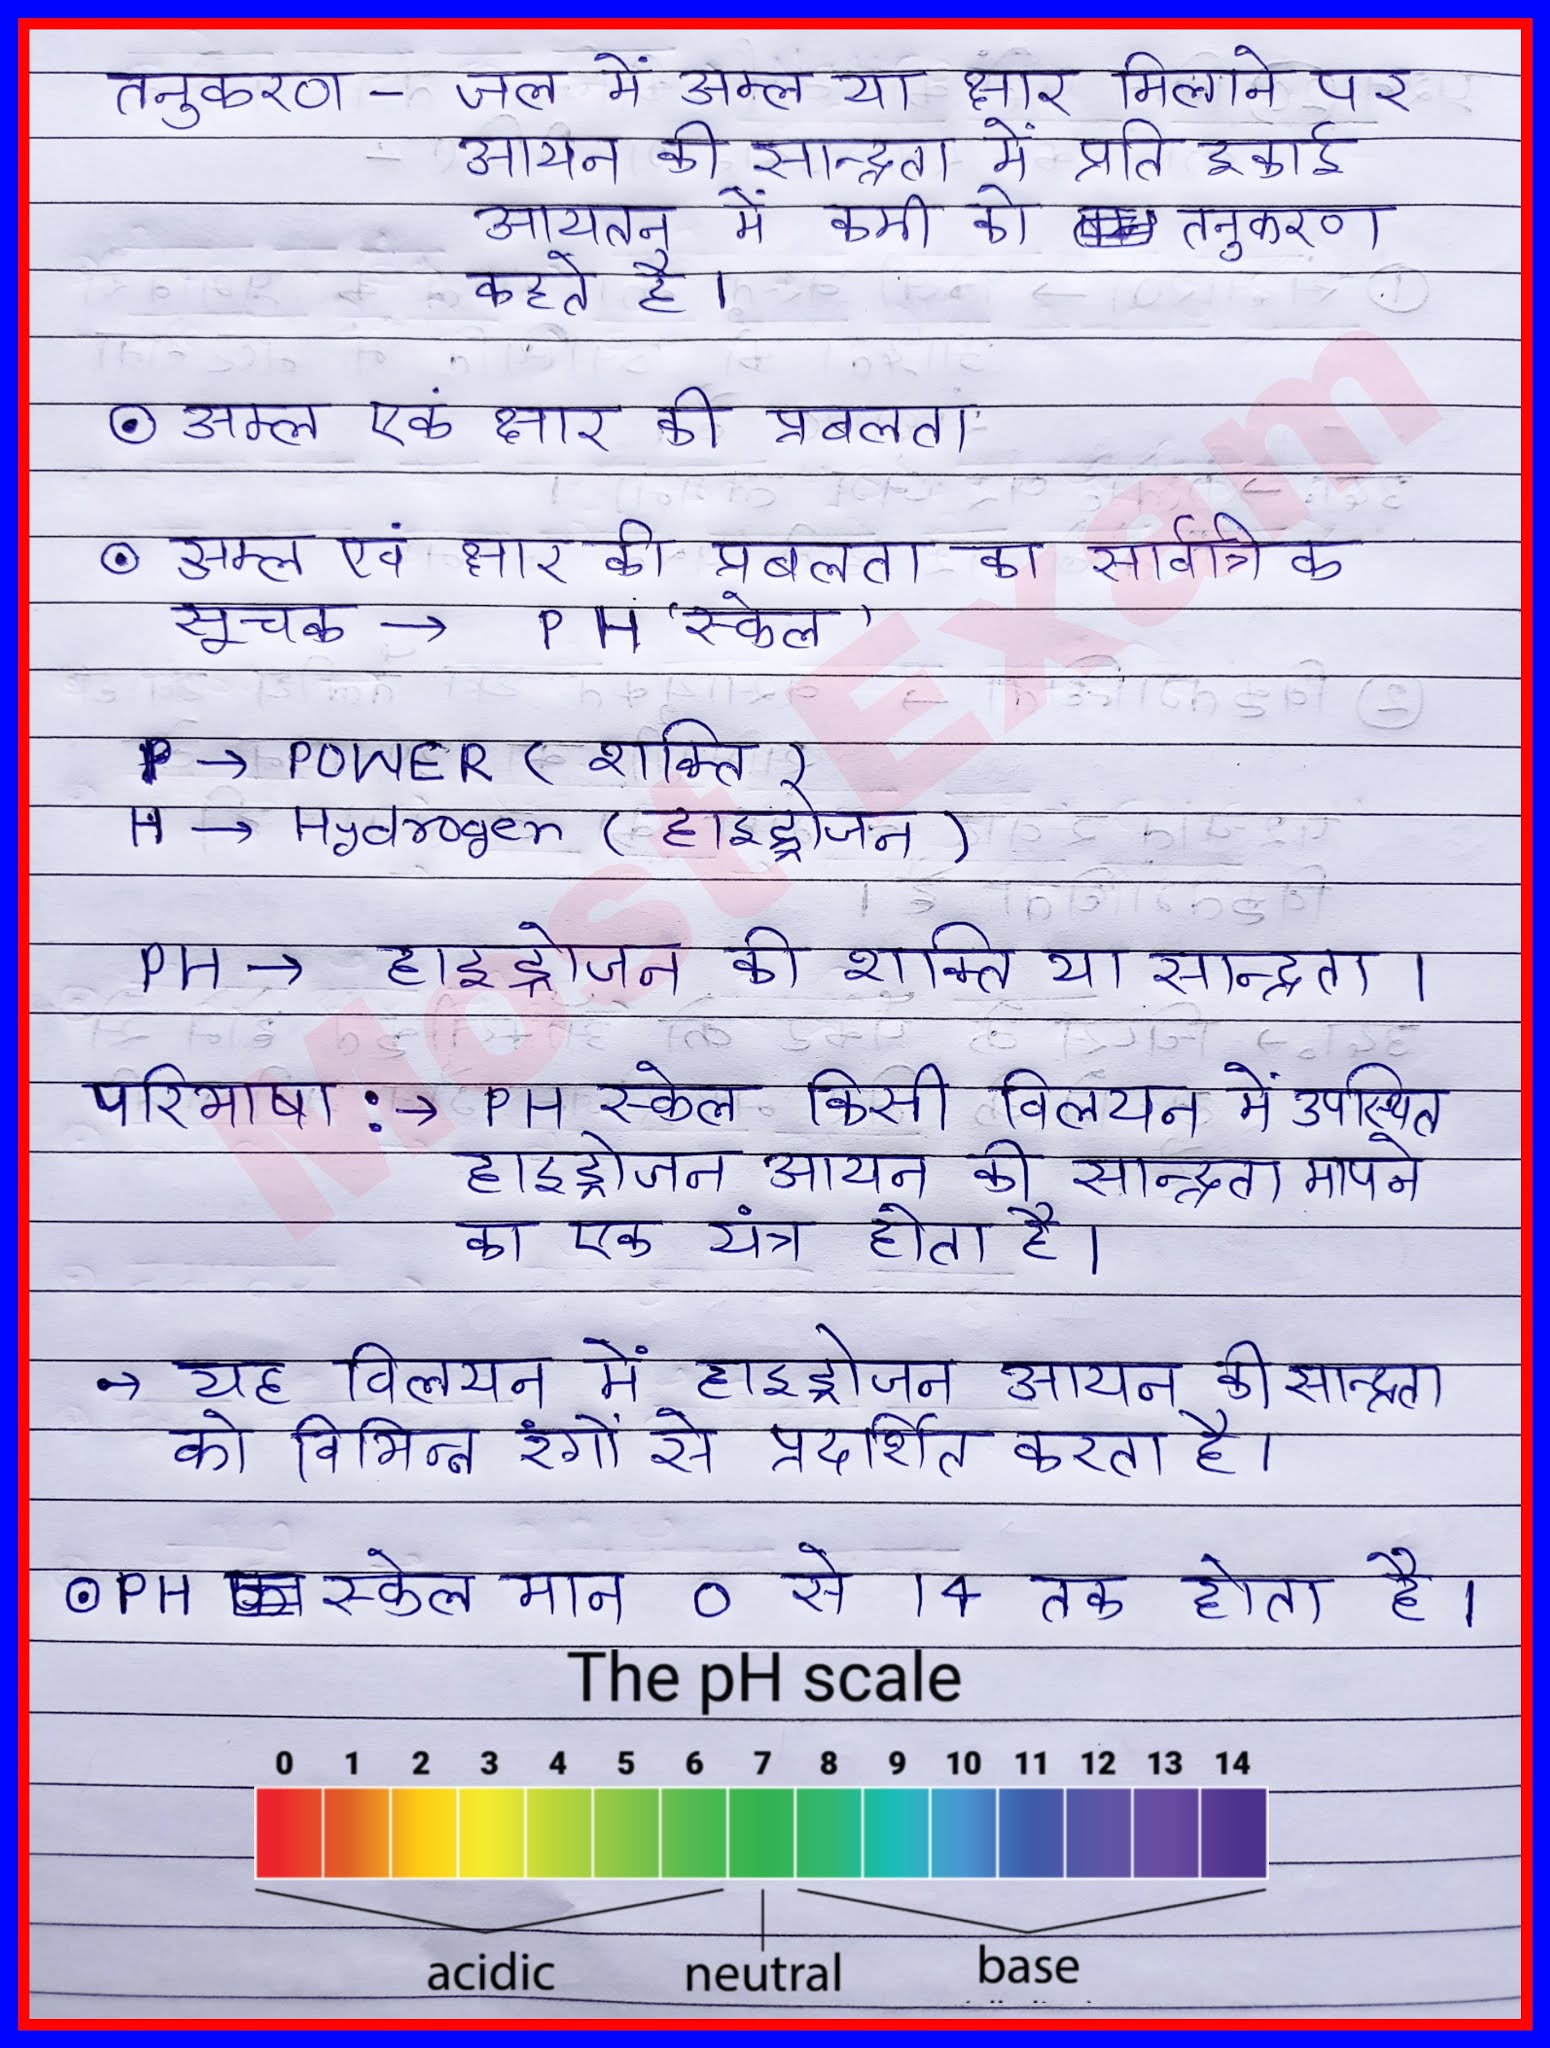 तनुकरण - जल में अम्ल या क्षार मिलाने पर
आयन की सान्द्रता में प्रति इकाई
आयतन में कमी को तनुकरण
कहते है।
⊙ अम्ल एकं क्षार की प्रबलता
⊙ अम्ल एवं क्षार की प्रबलता का सार्वत्रिक
सूचक → PH 'स्केल'
P → POWER ( शक्ति )
H → Hydrogen ( हाइड्रोजन )
PH → हाइड्रोजन की शक्ति या सान्द्रता ।
परिभाषा :→ PH स्केल किसी विलयन में उपस्थित
हाइड्रोजन आयन की सान्द्रता मापने
का एक यंत्र होता है।
→ यह विलयन में हाइड्रोजन आयन की सान्द्रता
को विभिन्न रंगों से प्रदर्शित करता है।
⊙ PH स्केल मान 0 से 14 तक होता है।
The pH scale
0 1 2 3 4 5 6 7 8 9 10 11 12 13 14
acidic neutral base
Most Exam